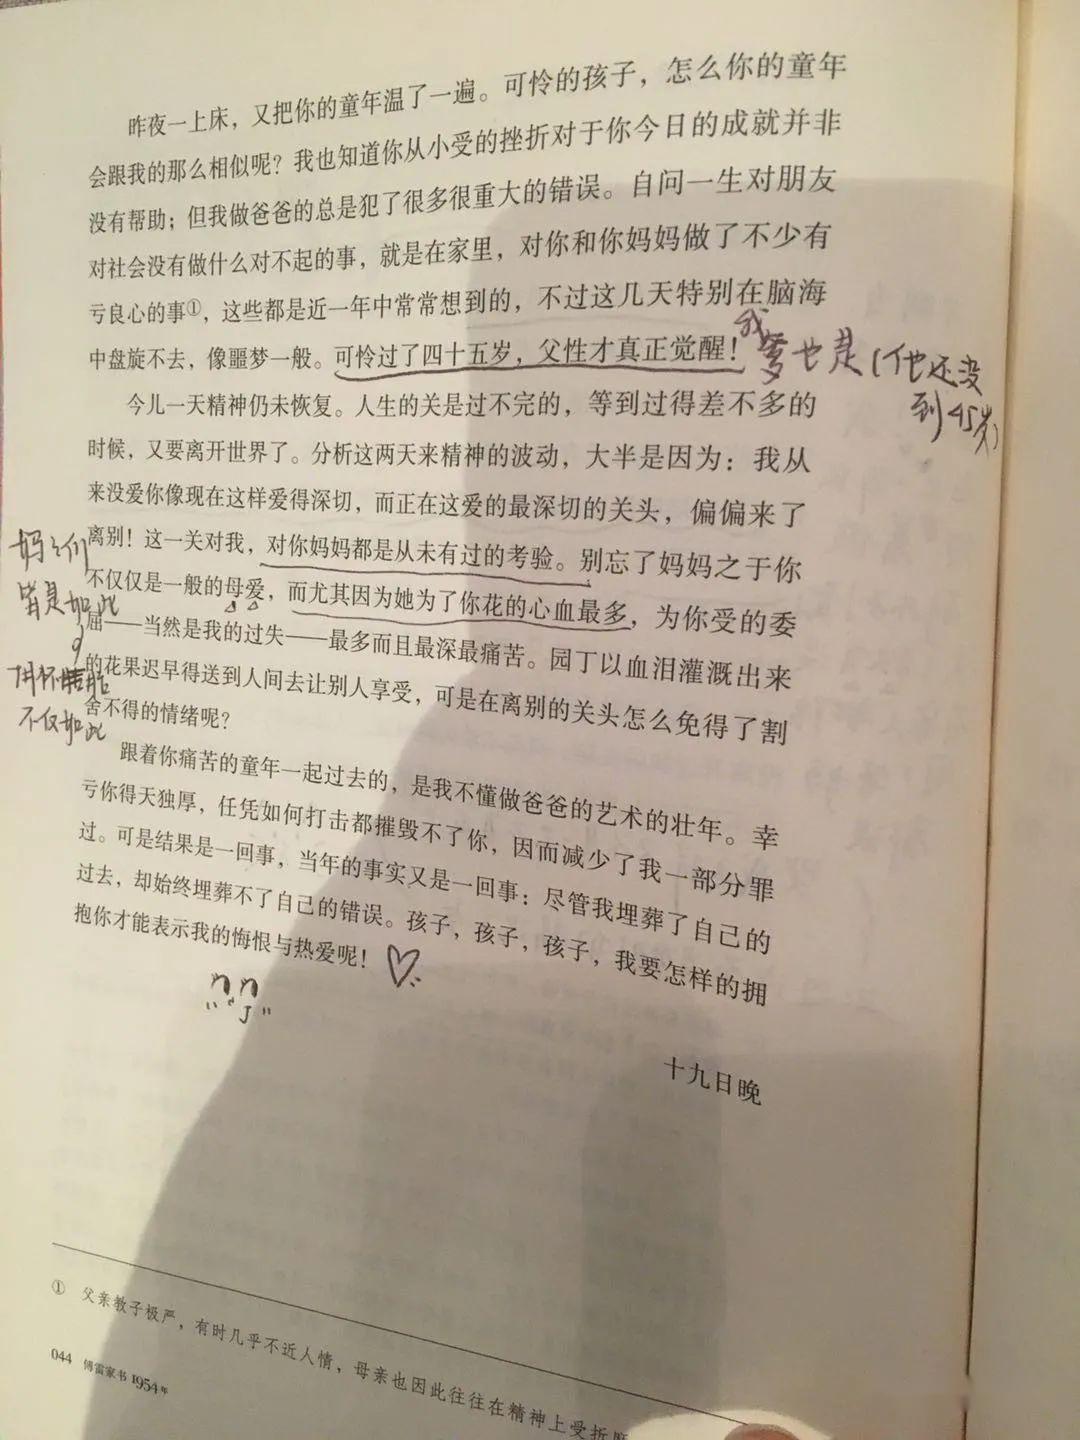 昨夜一上床，又把你的童年温了一遍。可怜的孩子，怎么你的童年
会跟我的那么相似呢？我也知道你从小受的挫折对于你今日的成就并非
没有帮助；但我做爸爸的总是犯了很多很重大的错误。自问一生对朋友
对社会没有做什么对不起的事，就是在家里，对你和你妈妈做了不少有
亏良心的事①，这些都是近一年中常常想到的，不过这几天特别在脑海
中盘旋不去，像噩梦一般。可怜过了四十五岁，父性才真正觉醒！
我爹也是(他还没
到45岁)
今儿一天精神仍未恢复。人生的关是过不完的，等到过得差不多的
时候，又要离开世界了。分析这两天来精神的波动，大半是因为：我从
来没爱你像现在这样爱得深切，而正在这爱的最深切的关头，偏偏来了
离别！这一关对我，对你妈妈都是从未有过的考验。别忘了妈妈之于你
不仅仅是一般的母爱，而尤其因为她为了你花的心血最多，为你受的委
屈——当然是我的过失——最多而且最深最痛苦。园丁以血泪灌溉出来
的花果迟早得送到人间去让别人享受，可是在离别的关头怎么免得了割
舍不得的情绪呢？
妈妈们
皆是如此
不仅如此
跟着你痛苦的童年一起过去的，是我不懂做爸爸的艺术的壮年。幸
亏你得天独厚，任凭如何打击都摧毁不了你，因而减少了我一部分罪
过。可是结果是一回事，当年的事实又是一回事：尽管我埋葬了自己的
过去，却始终埋葬不了自己的错误。孩子，孩子，孩子，我要怎样的拥
抱你才能表示我的悔恨与热爱呢！
十九日晚
① 父亲教子极严，有时几乎不近人情，母亲也因此往往在精神上受折
044 傅雷家书 1954年